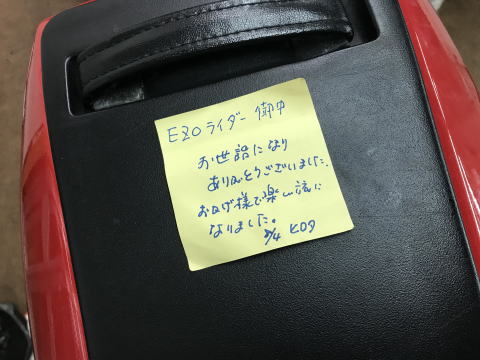 EZOライダー 御中
お世話になり
ありがとうございました。
おかげ様で楽しい旅に
なりました。
8/4 ヒロタ